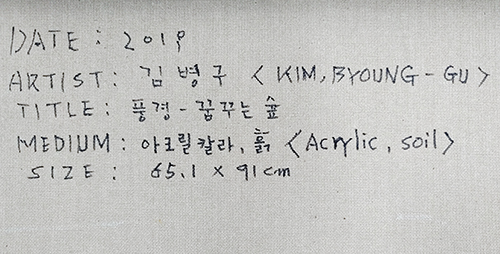 DATE : 2019
ARTIST : 김병구 < KIM, BYOUNG - GU >
TITLE : 풍경 - 꿈꾸는 숲
MEDIUM : 아크릴칼라, 흙 < Acrylic, soil >
SIZE : 65.1 x 91 cm